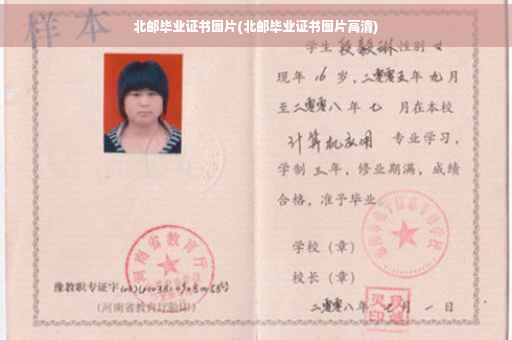 北邮毕业证书图片(北邮毕业证书图片高清)
样本
学生段毅琳性别女
现年16岁,二零零五年九月
至二零零八年七月在本校
计算机应用 专业学习,
学制三年,修业期满,成绩
合格,准予毕业。
学校(章)
校长(章)
二零零八年七月一日
河南省教育厅
豫教职专证字
(河南省教育厅验印)